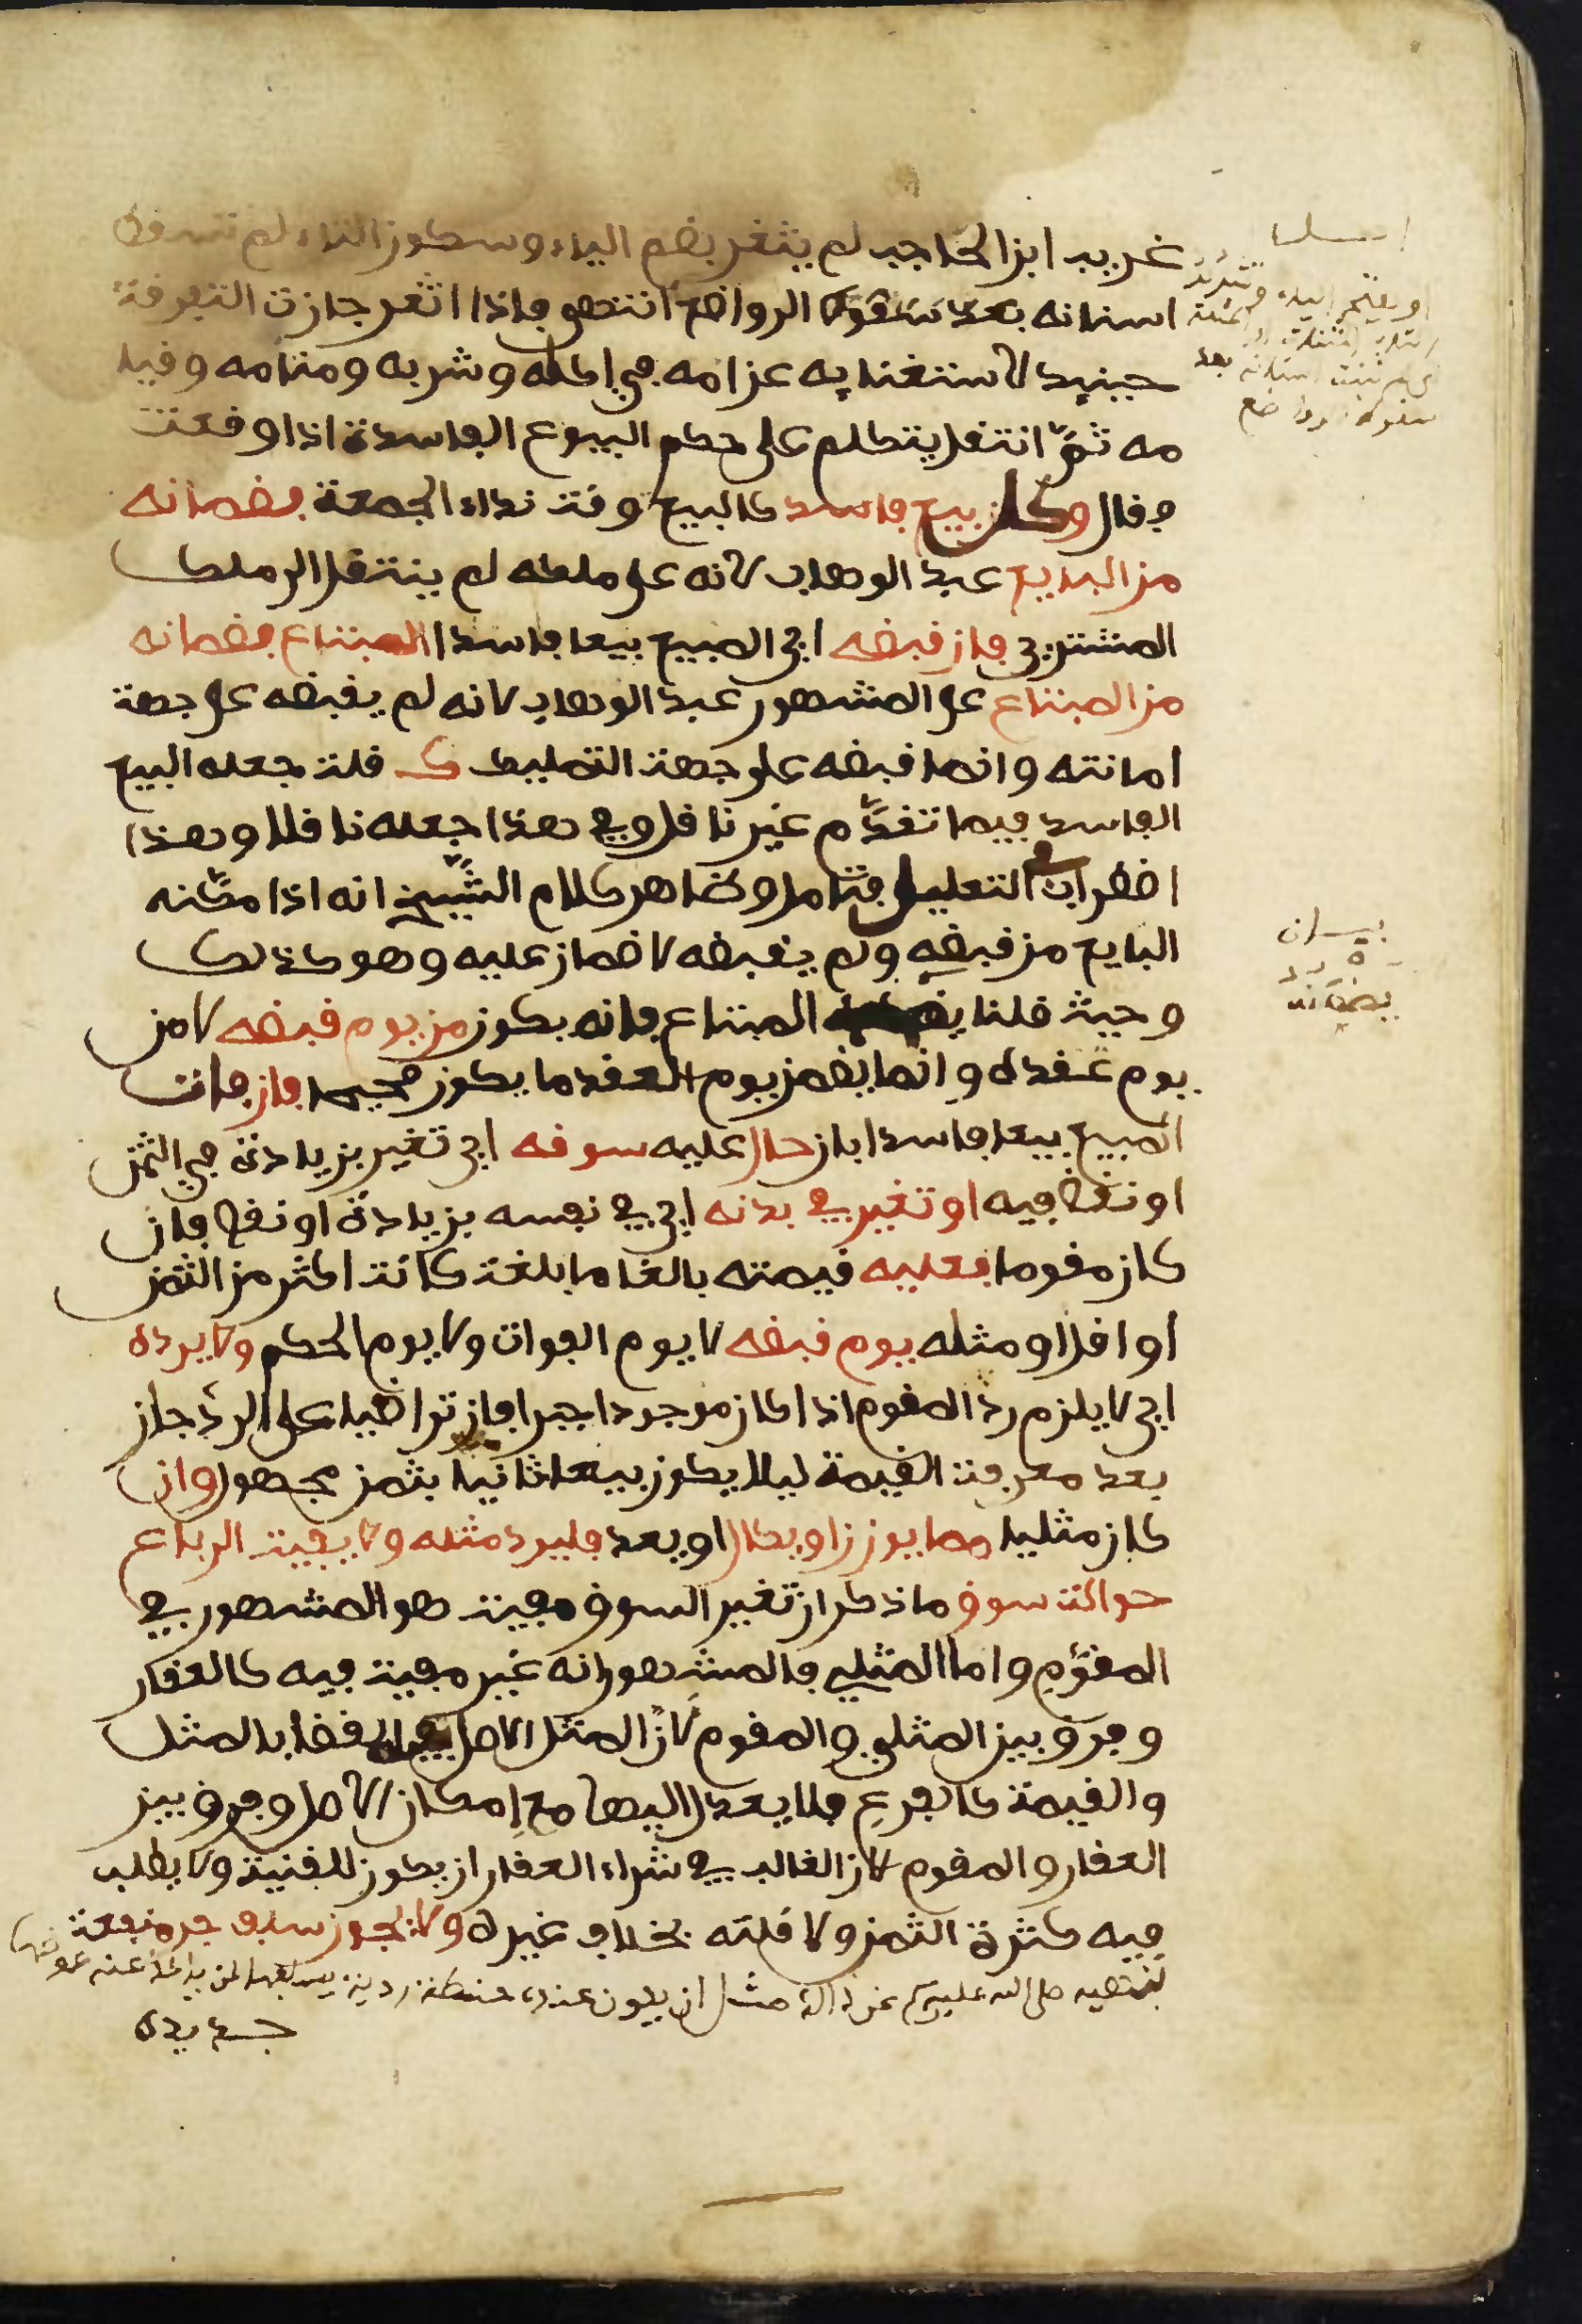 غريب ابن الحاجب لم يثغر بضم الياء وسكون الثاء لم تسقط
اسنانه بعد سقوط الرواضع انتهى فاذا اثغر جازت التفرقة
حينيد لاستغنايه عن امه في اكله وشربه ومنامه وقيا
مه ثمّ انتقل يتكلم على حكم البيوع الفاسدة اذا وقعت
فقال وكل بيع فاسد كالبيع وقت نداء الجمعة فضمانه
من البايع عبد الوهاب لانه على ملكه لم ينتقل الى ملك
المشتري فان قبضه اي المبيع بيعا فاسدا المبتاع فضمانه
من المبتاع على المشهور عبد الوهاب لانه لم يقبضه على جهة
امانته وانما قبضه على جهة التمليك ك قلت جعله البيع
الفاسد فيما تقدَّم غير ناقل وفي هذا جعله ناقلا وهذا
اضطراب في التعليل فتامل وظاهر كلام الشَّيخ انه اذا مكّنه
البايع من قبضه ولم يقبضه لا ضمان عليه وهو كذلك
وحيث قلنا المبتاع فانه يكون من يوم قبضه لا من
يوم عقده وانما يضمن بيوم العقد ما يكون صحيحا فان فات
المبيع بيعا فاسدا بان حال عليه سوقه اي تغير بزيادة في الثمن
او نقص فيه او تغير في بدنه اي في نفسه بزيادة او نقص فان
كان مقوما فعليه قيمته بالغا ما بلغت كانت اكثر من الثمن
او اقل او مثله يوم قبضه لا يوم الفوات ولا يوم الحكم ولا يرده
اي لا يلزم ردّ المقوم اذا كان موجودا جبرا فان تراضيا على الردّ جاز
بعد معرفت القيمة ليلا يكون بيعا ثانيا بثمن مجهول وان
كان مثليا مما يوزن او يكال او يعد فليرد مثله ولا يفيت الرباع
حوالت سوق ما ذكر ان تغير السوق مفيت هو المشهور في
المقوّم واما المثلي فالمشهور انه غير مفيت فيه كالعقار
وفرق بين المثلي والمقوم لانّ المثل الاصل القضا بالمثل
والقيمة كالفرع فلا يعدل اليها مع اِمكان الاصل وفرق بين
العقار والمقوم لان الغالب في شراء العقار ان يكون للقنية ولا يطلب
فيه كثرة الثمن ولا قلته بخلاف غيره ولا يجوز سلف جر منفعة
لنهيه صلى الله عليه وسلم عن ذالك مثل ان يكون عنده حنطة ردية يسلفها لمن ياخذ عنه عوضها
جديدة
او بفتح الياء وتشديد
اسنانه بعد
سقوط الرواضع
بضمانه